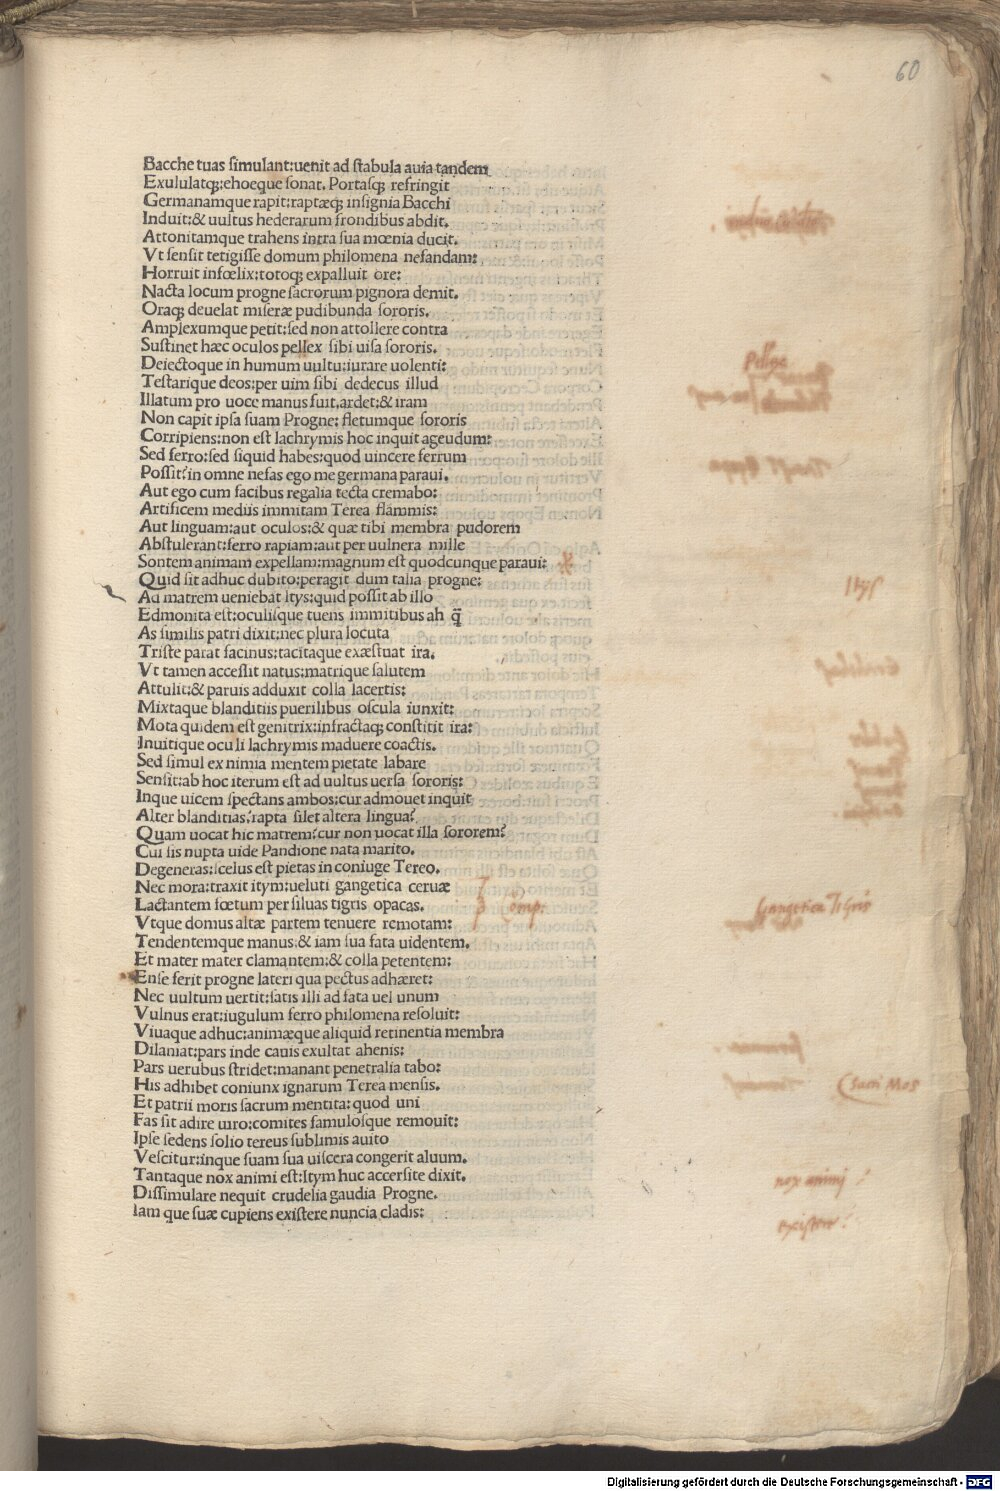 60
Bacche tuas simulant:uenit ad stabula auia tandem
Exululatq;:ehoeque sonat. Portasq; refringit
Germanamque rapit:raptæq; insignia Bacchi
Induit:& uultus hederarum frondibus abdit.
Attonitamque trahens intra sua mœnia ducit.
Vt sensit tetigisse domum philomena nefandam:
Horruit infœlix:totoq; expalluit ore:
Nacta locum progne sacrorum pignora demit.
Oraq; deuelat miseræ pudibunda sororis.
Amplexumque petit:sed non attollere contra
Sustinet hæc oculos pellex sibi uisa sororis.
Deiectoque in humum uultu:iurare uolenti:
Testarique deos:per uim sibi dedecus illud
Illatum pro uoce manus fuit.ardet:& iram
Non capit ipsa suam Progne: fletumque sororis
Corripiens:non est lachrymis hoc inquit agendum:
Sed ferro:sed siquid habes:quod uincere ferrum
Possit:in omne nefas ego me germana paraui.
Aut ego cum facibus regalia tecta cremabo:
Artificem mediis immitam Terea flammis:
Aut linguam:aut oculos:& quæ tibi membra pudorem
Abstulerant:ferro rapiam:aut per uulnera mille
Sontem animam expellam:magnum est quodcunque paraui:
Quid sit adhuc dubito:peragit dum talia progne:
Ad matrem ueniebat Itys:quid possit ab illo
Edmonita est:oculisque tuens immitibus ah q̄
As similis patri dixit:nec plura locuta
Triste parat facinus:tacitaque exæstuat ira.
Vt tamen accessit natus:matrique salutem
Attulit:& paruis adduxit colla lacertis:
Mixtaque blanditiis puerilibus oscula iunxit:
Mota quidem est genitrix:infractaq; constitit ira:
Inuitique oculi lachrymis maduere coactis.
Sed simul ex nimia mentem pietate labare
Sensit:ab hoc iterum est ad uultus uersa sororis:
Inque uicem spectans ambos:cur admouet inquit
Alter blanditias? rapta silet altera lingua?
Quam uocat hic matrem?cur non uocat illa sororem?
Cui sis nupta uide Pandione nata marito.
Degeneras:scelus est pietas in coniuge Tereo.
Nec mora:traxit itym:ueluti gangetica ceruæ
Lactantem fœtum per siluas tigris opacas.
Vtque domus altæ partem tenuere remotam:
Tendentemque manus:& iam sua fata uidentem.
Et mater mater clamantem:& colla petentem:
Ense ferit progne lateri qua pectus adhæret:
Nec uultum uertit:satis illi ad fata uel unum
Vulnus erat:iugulum ferro philomena resoluit:
Viuaque adhuc:animæque aliquid retinentia membra
Dilaniat:pars inde cauis exultat ahenis:
Pars uerubus stridet:manant penetralia tabo:
His adhibet coniunx ignarum Terea mensis.
Et patrii moris sacrum mentita: quod uni
Fas sit adire uiro:comites famulosque remouit:
Ipse sedens solio tereus sublimis auito
Vescitur:inque suam sua uiscera congerit aluum.
Tantaque nox animi est:Itym huc accersite dixit.
Dissimulare nequit crudelia gaudia Progne.
Iam que suæ cupiens existere nuncia cladis:
Itys
Comp:
Gangetica Tigris
Sacri Mos
nox animi
existere
Digitalisierung gefördert durch die Deutsche Forschungsgemeinschaft - DFG